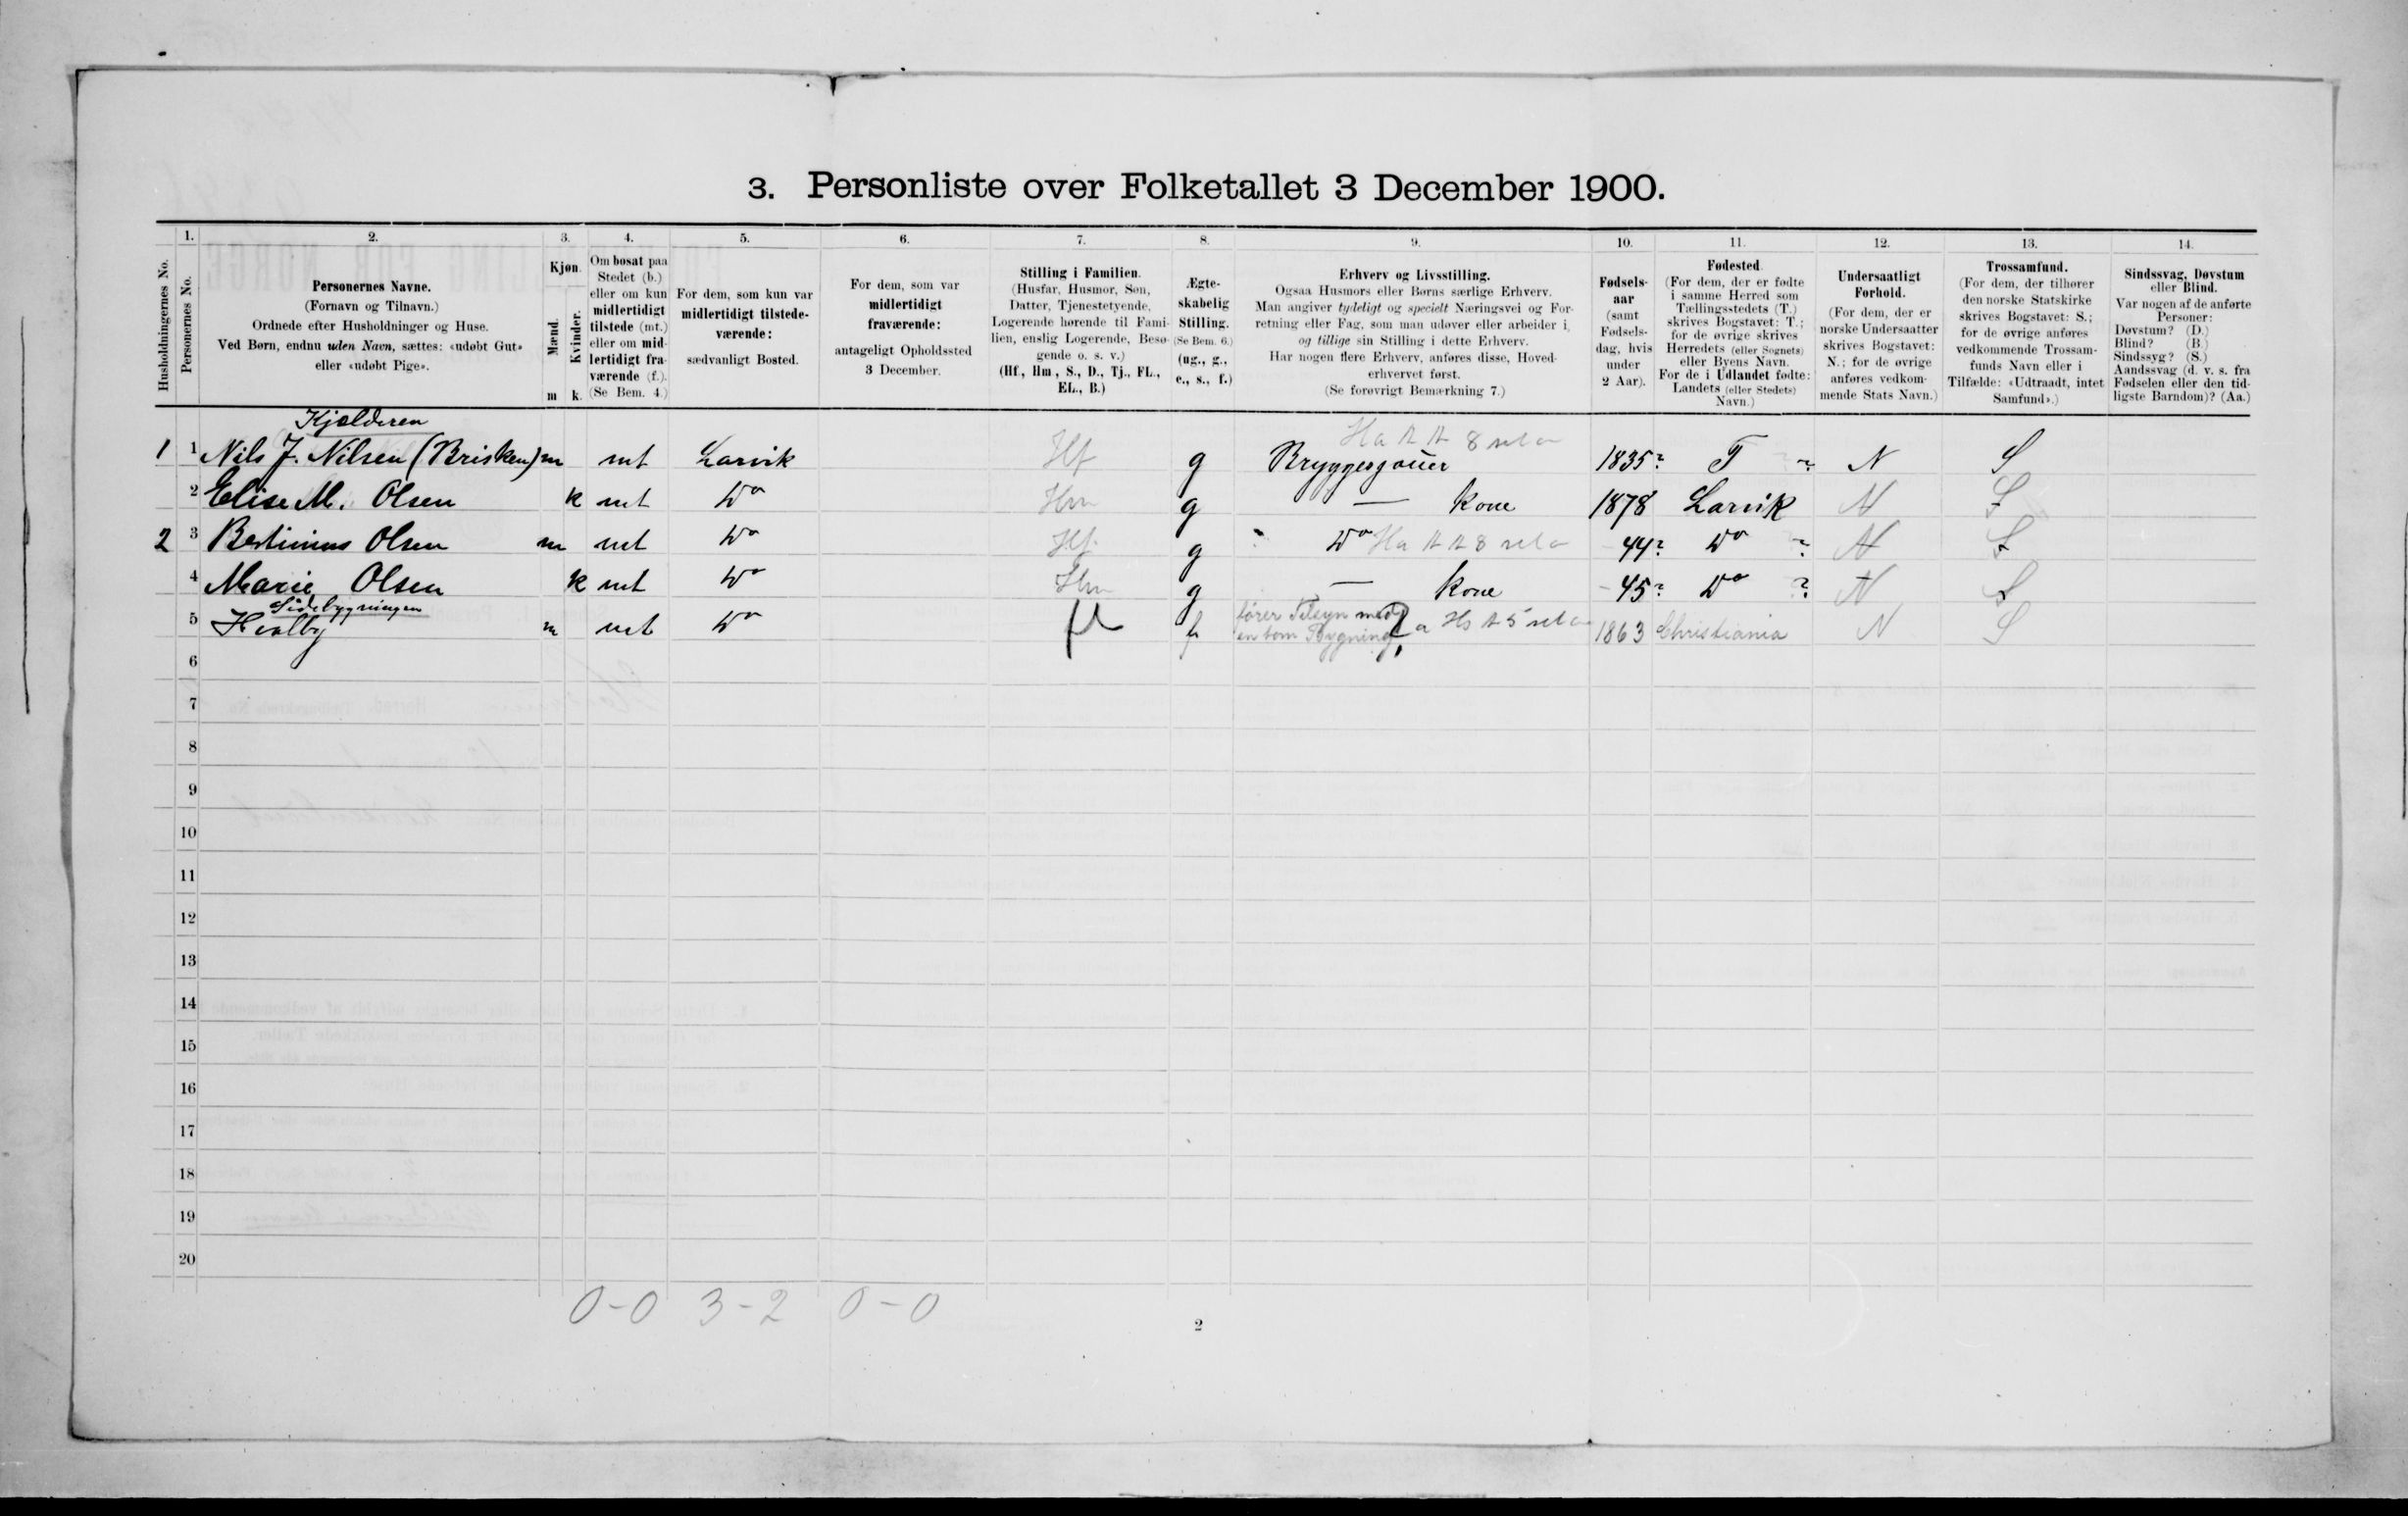 3. Personliste over Folketallet 3 December 1900.
1. 2. 3. 4. 5. 6. 7. 8. 9. 10. 11. 12. 13. 14.
Husholdningernes No.
Personernes No.
Personernes Navne.
(Fornavn og Tilnavn.)
Ordnede efter Husholdninger og Huse.
Ved Børn, endnu uden Navn, sættes: «udøbt Gut»
eller «udøbt Pige».
Kjøn.
Mænd.
Kvinder.
m k.
Om bosat paa
Stedet (b.)
eller om kun
midlertidigt
tilstede (mt.)
eller om mid-
lertidigt fra-
værende (f.).
(Se Bem. 4.)
For dem, som kun var
midlertidigt tilstede-
værende:
sædvanligt Bosted.
For dem, som var
midlertidigt
fraværende:
antageligt Opholdssted
3 December.
Stilling i Familien.
(Husfar, Husmor, Søn,
Datter, Tjenestetyende,
Logerende hørende til Fami-
lien, enslig Logerende, Besø-
gende o. s. v.)
(Hf., Hm., S., D., Tj., FL.,
EL., B.)
Ægte-
skabelig
Stilling.
(Se Bem. 6.)
(ug., g.,
e., s., f.)
Erhverv og Livsstilling.
Ogsaa Husmors eller Børns særlige Erhverv.
Man angiver tydeligt og specielt Næringsvei og For-
retning eller Fag, som man udøver eller arbeider i,
og tillige sin Stilling i dette Erhverv.
Har nogen flere Erhverv, anføres disse, Hoved-
erhvervet først.
(Se forøvrigt Bemærkning 7.)
Fødsels-
aar
(samt
Fødsels-
dag, hvis
under
2 Aar).
Fødested.
(For dem, der er fødte
i samme Herred som
Tællingsstedets (T.)
skrives Bogstavet: T.;
for de øvrige skrives
Herredets (eller Sognets)
eller Byens Navn.
For de i Udlandet fødte:
Landets (eller Stedets)
Navn.)
Undersaatligt
Forhold.
(For dem, der er
norske Undersaatter
skrives Bogstavet:
N.; for de øvrige
anføres vedkom-
mende Stats Navn.)
Trossamfund.
(For dem, der tilhører
den norske Statskirke
skrives Bogstavet: S.;
for de øvrige anføres
vedkommende Trossam-
funds Navn eller i
Tilfælde: «Udtraadt, intet
Samfund».)
Sindssvag, Døvstum
eller Blind.
Var nogen af de anførte
Personer:
Døvstum? (D.)
Blind? (B.)
Sindssyg? (S.)
Aandssvag (d. v. s. fra
Fødselen eller den tid-
ligste Barndom)? (Aa.)
Kjælderen
1 1 Nils J. Nilsen (Brisken) m mt Larvik Hf g Bryggesjouer 1835? T ? N S
2 Elise M. Olsen k mt Do Hm g — kone 1878 Larvik N S
2 3 Bertinius Olsen m mt Do Hf g Do - 44? Do ? N S
4 Marie Olsen k mt Do Hm g — kone - 45? Do ? N S
Sidebygningen
5 Hvalby m mt Do fl f fører Tilsyn med 1863 Christiania N S
en tom Bygning
6
7
8
9
10
11
12
13
14
15
16
17
18
19
20
0-0 3-2 0-0
2